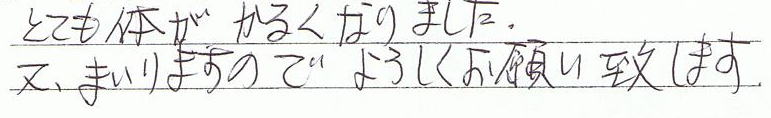 とても体が かるくなりました.
又、まいりますので よろしくお願い致します.